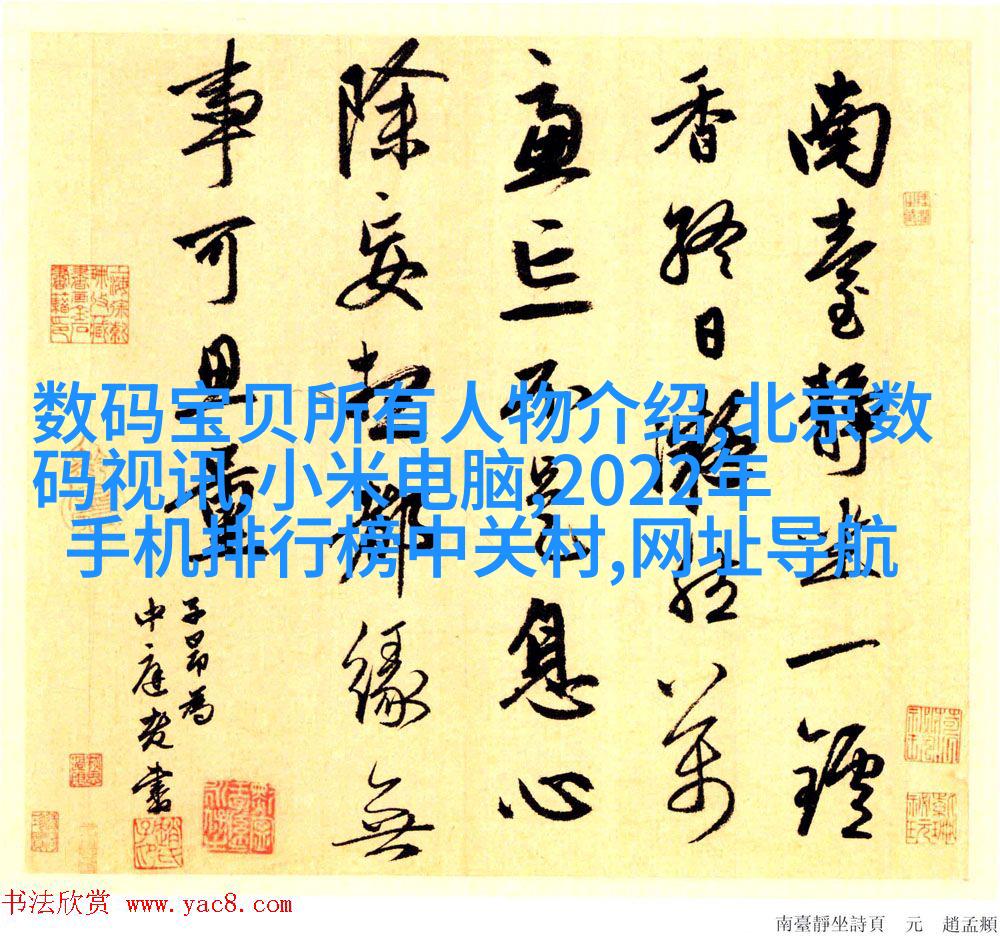 南臺靜坐一鑪
香終日凝然萬
慮亡不是息心
除妄想都緣無
事可思量
子昂為
中庭書
数码宝贝所有人物介绍,北京数
码视讯,小米电脑,2022年
手机排行榜中关村,网址导航
书法欣赏 www.yac8.com
南臺靜坐詩頁 元 趙孟頫